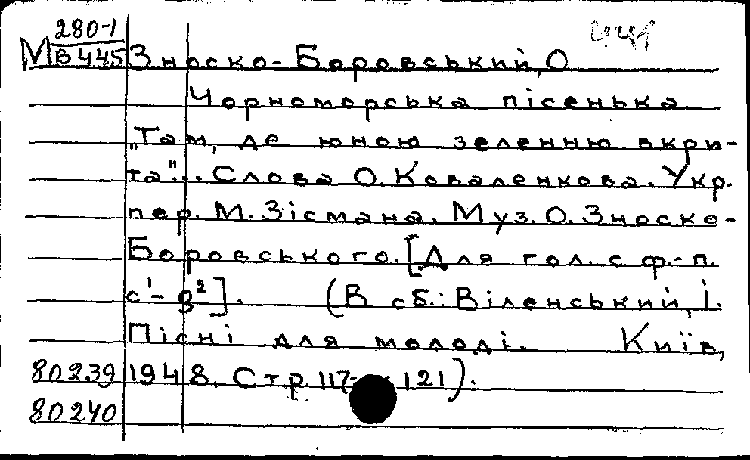 280-1
М в 445 Зноско-Боровський, О
Чорноморська пісенька
„Там, де юною зеленню вкри-
та"... Слова О. Коваленкова. Укр.
пер. М. Зісмана. Муз. О. Зноско-
Боровського. [Для гол. с ф.-п.
c¹ - g²]. (В сб.: Віленський, І.
Пісні для молоді. Київ,
80239 1948. Стр 117- 121).
80240